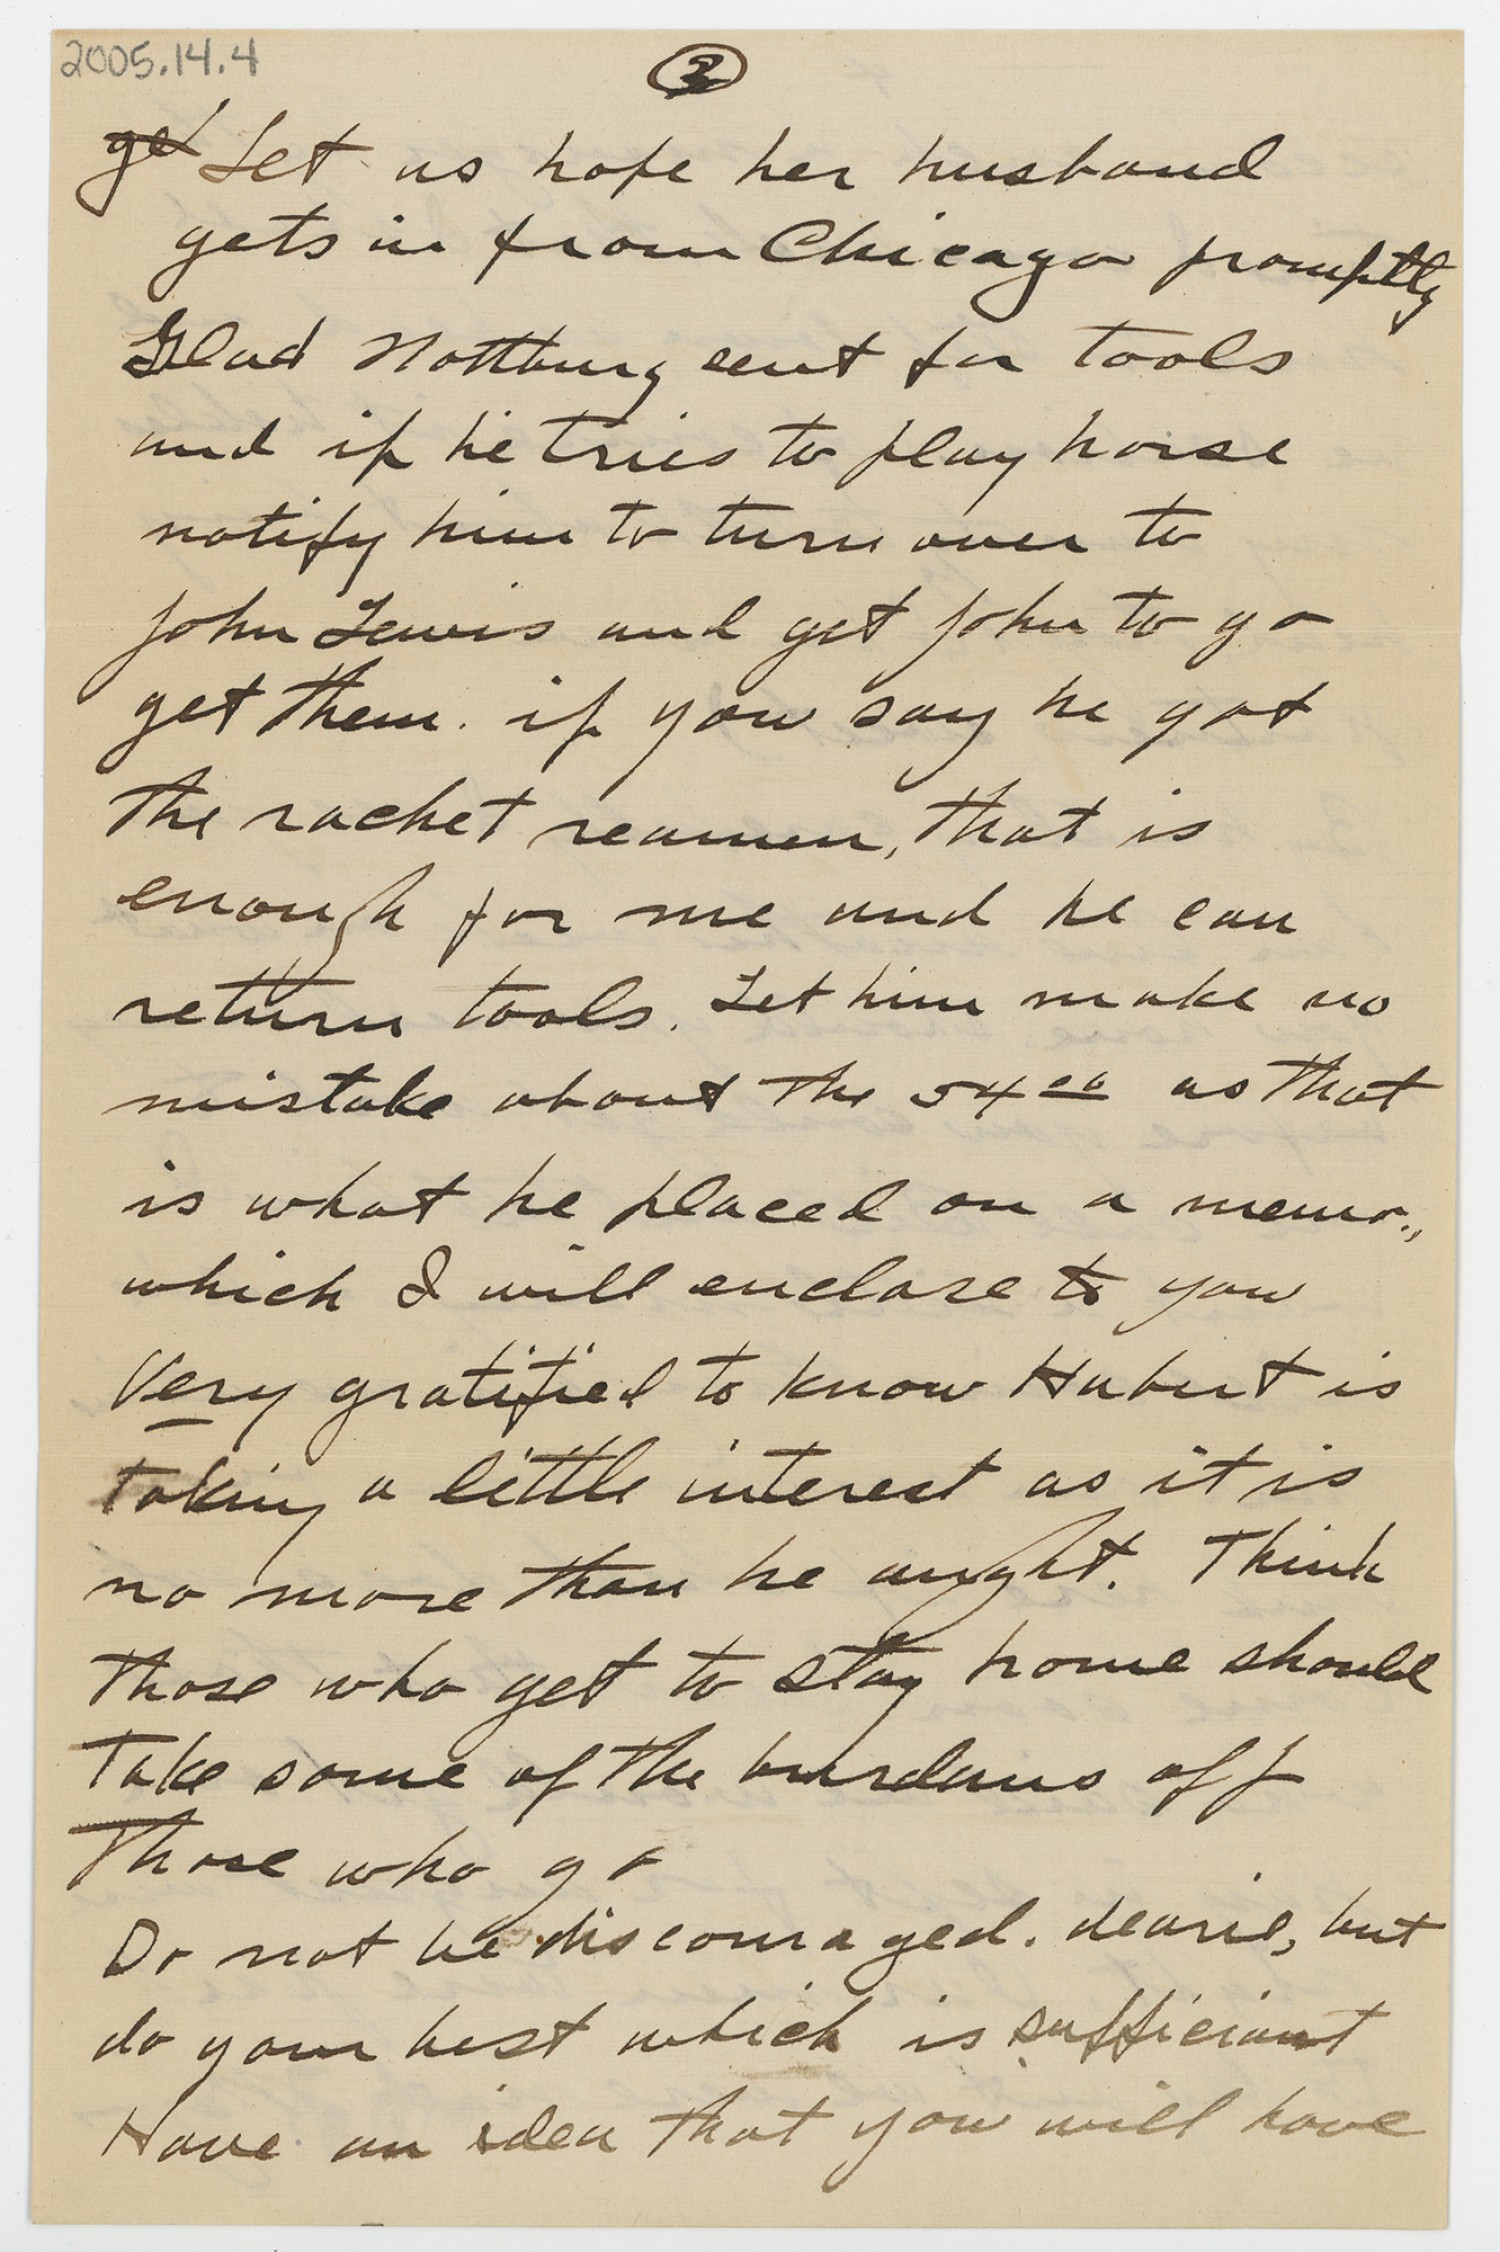 2005.14.4
3
ge Let us hope her husband
gets in from Chicago promptly
Glad Nottburg sent for tools
and if he tries to play horse
notify him to turn over to
John Lewis and get John to go
get them. if you say he got
the rachet reamer, that is
enough for me and he can
return tools. Let him make no
mistake about the 54 00 as that
is what he placed on a memo.,
which I will enclose to you
Very gratified to know Hubert is
taking a little interest as it is
no more than he aught. Think
those who get to stay home should
Take some of the burdens off
Those who go
Do not be discouraged. dearie, but
do your best which is sufficiant
Have an idea that you will have